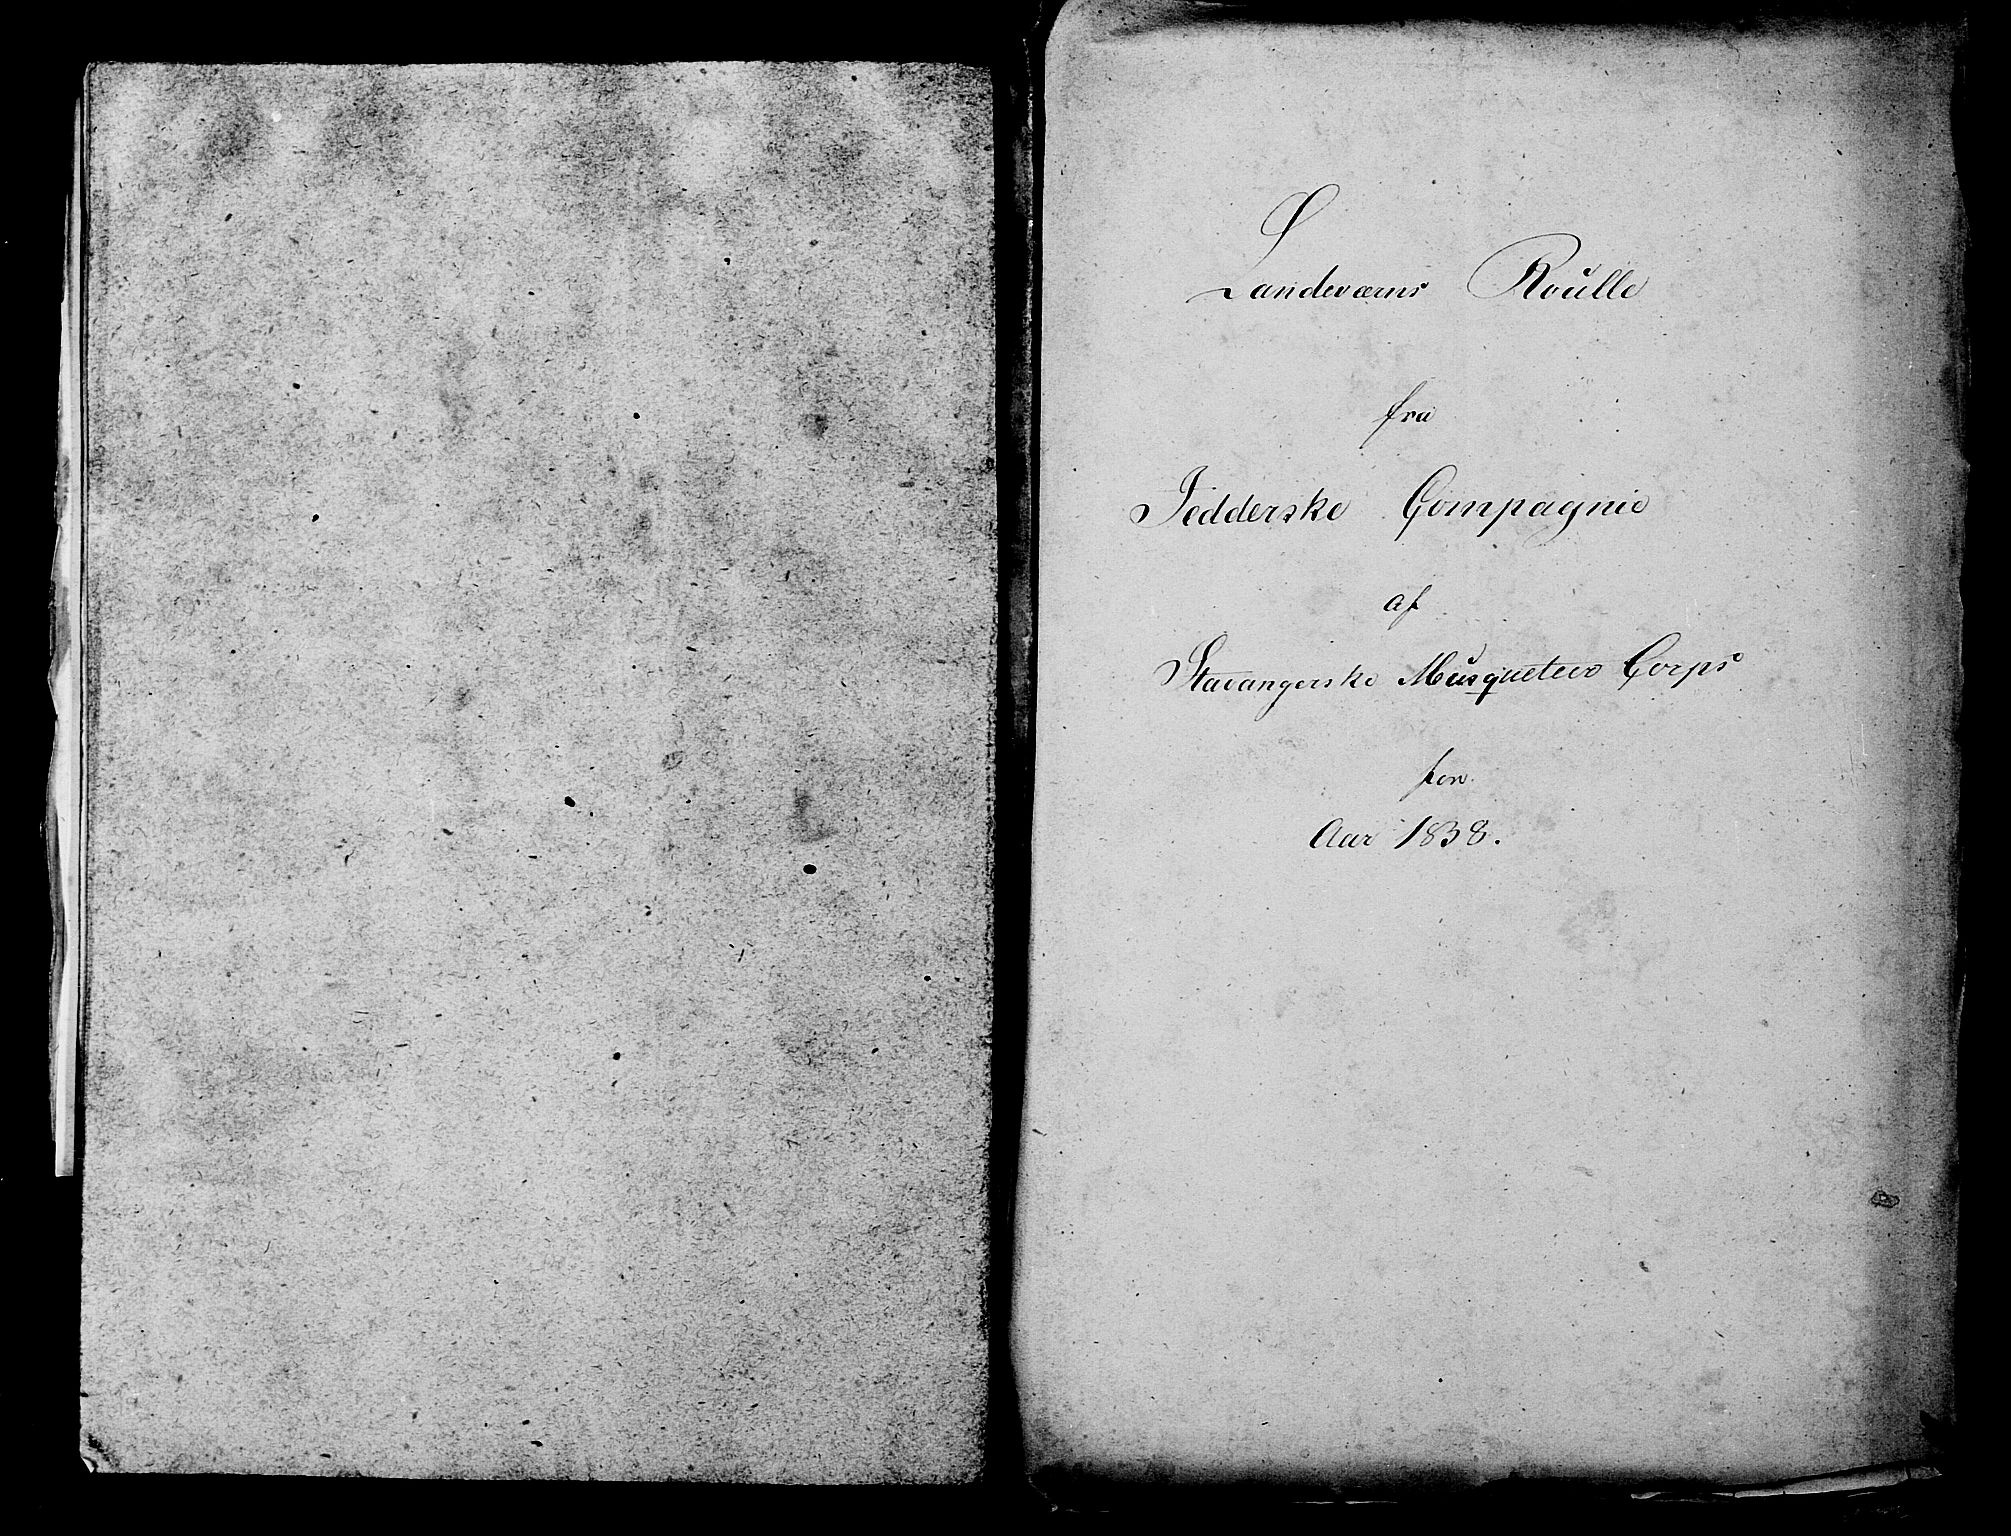 Landeværns Roulle
fra
Jedderske Compagnie
af
Stavangerske Musqueteer Corps
for
Aar 1838.